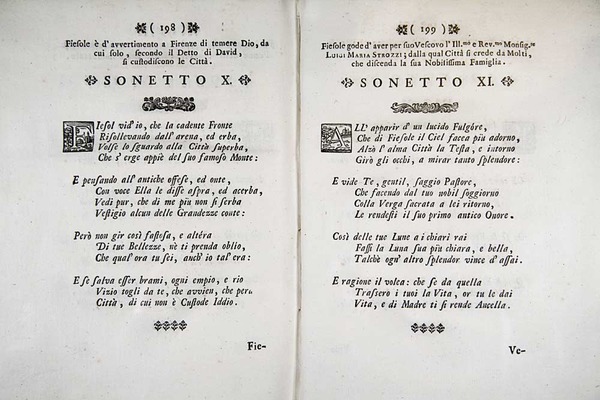 ( 198 )
Fiesole è d' avvertimento a Firenze di temere Dio, da
cui solo, secondo il Detto di David,
si custodiscono le Città.
SONETTO X.
Fiesol vid' io, che la cadente Fronte
Risollevando dall' arena, ed erba,
Volse lo sguardo alla Città superba,
Che s' erge appiè del suo famoso Monte:
E pensando all' antiche offese, ed onte,
Con voce Ella le disse aspra, ed acerba,
Vedi pur, che di me più non si serba
Vestigio alcun delle Grandezze conte:
Però non gir così fastosa, e altéra
Di tue Bellezze, nè ti prenda oblio,
Che qual' ora tu sei, anch' io tal' era:
E se salva esser brami, ogni empio, e rio
Vizio togli da te, che avvien, che pera
Città, di cui non è Custode Iddio.
Fie-
( 199 )
Fiesole gode d' aver per suo Vescovo l' Ill.mo e Rev.mo Monsig.re
LUIGI MARIA STROZZI; dalla qual Città si crede da Molti,
che discenda la sua Nobilissima Famiglia.
SONETTO XI.
ALL' apparir d' un lucido Fulgóre,
Che di Fiesole il Ciel facea più adorno,
Alzò l' alma Città la Testa, e intorno
Girò gli occhi, a mirar tanto splendore:
E vide Te, gentil, saggio Pastore,
Che facendo dal tuo nobil soggiorno
Colla Verga sacrata a lei ritorno,
Le rendesti il suo primo antico Onore.
Così delle tue Lune a i chiari rai
Fassi la Luna sua più chiara, e bella,
Talchè ogn' altro splendor vince d' assai.
E ragione il volea: che se da quella
Trassero i tuoi la Vita, or tu le dai
Vita, e di Madre ti si rende Ancella.
Ve-